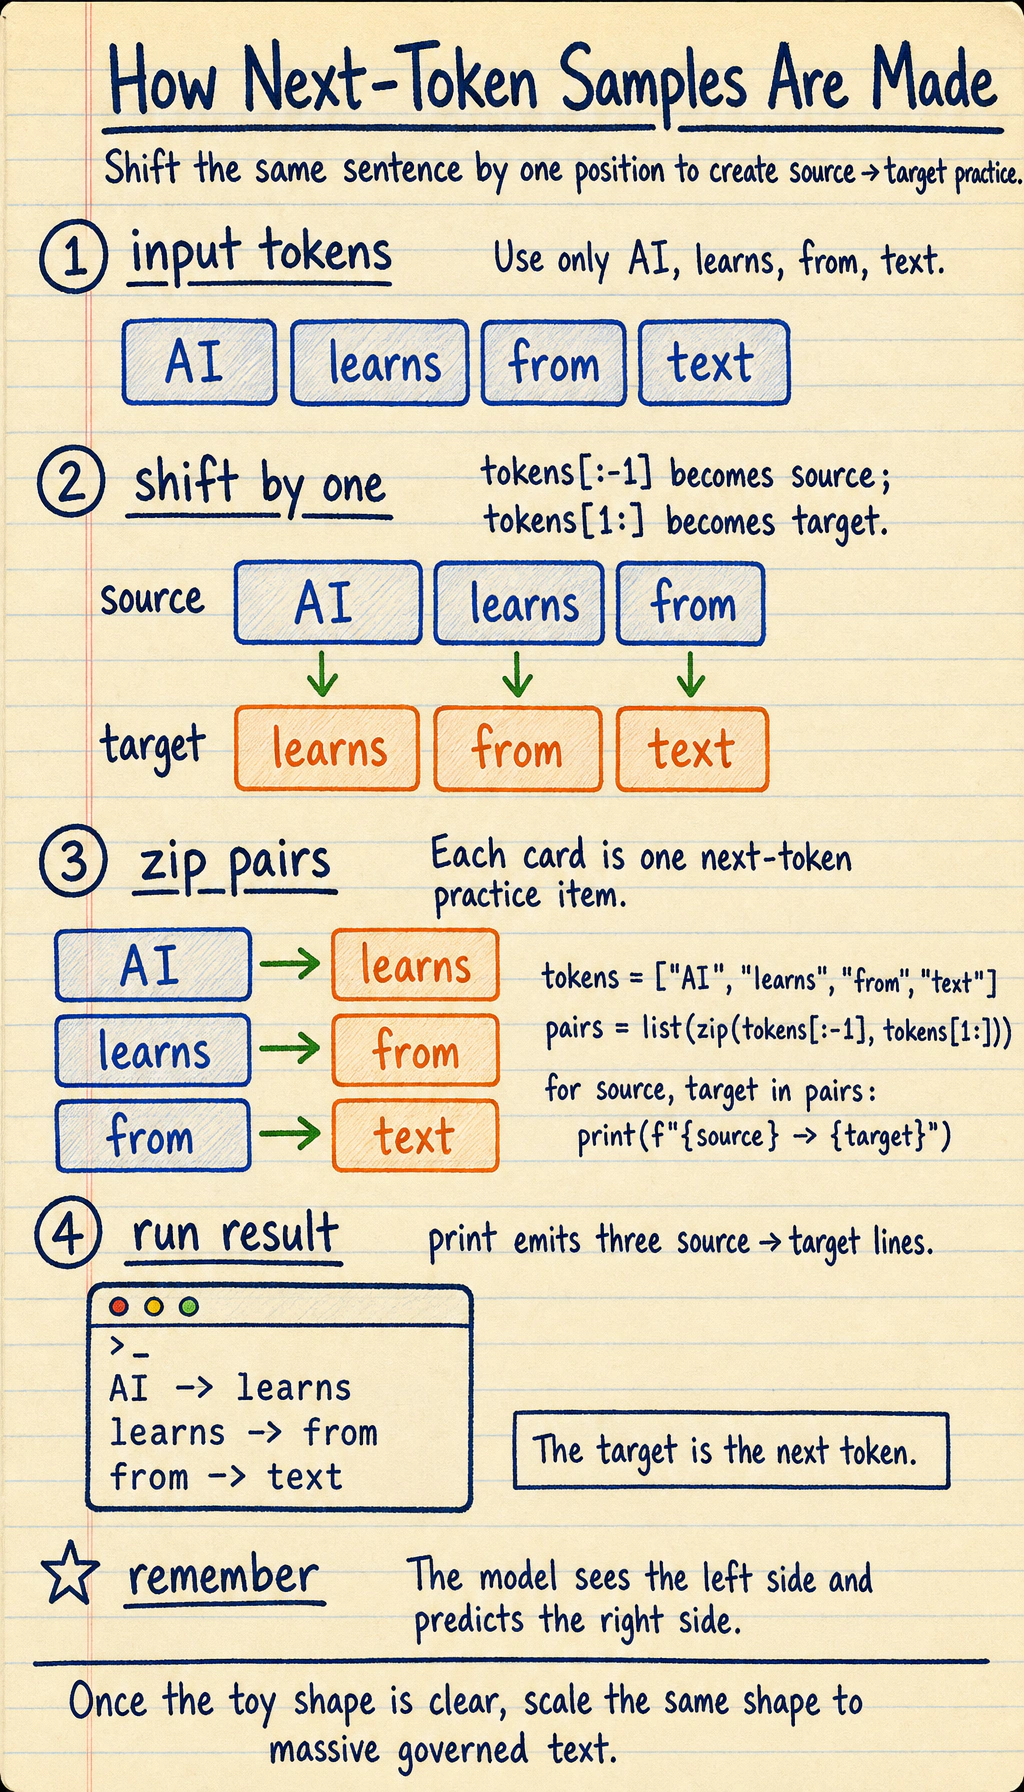 How Next-Token Samples Are Made
Shift the same sentence by one position to create source → target practice.
1 input tokens
Use only AI, learns, from, text.
AI learns from text
2 shift by one
tokens[:-1] becomes source;
tokens[1:] becomes target.
source AI learns from
target learns from text
3 zip pairs
Each card is one next-token
practice item.
AI → learns
learns → from
from → text
tokens = ["AI", "learns", "from", "text"]
pairs = list(zip(tokens[:-1], tokens[1:]))
for source, target in pairs:
print(f"{source} -> {target}")
4 run result
print emits three source → target lines.
>_
AI -> learns
learns -> from
from -> text
The target is the next token.
remember
The model sees the left side and
predicts the right side.
Once the toy shape is clear, scale the same shape to
massive governed text.